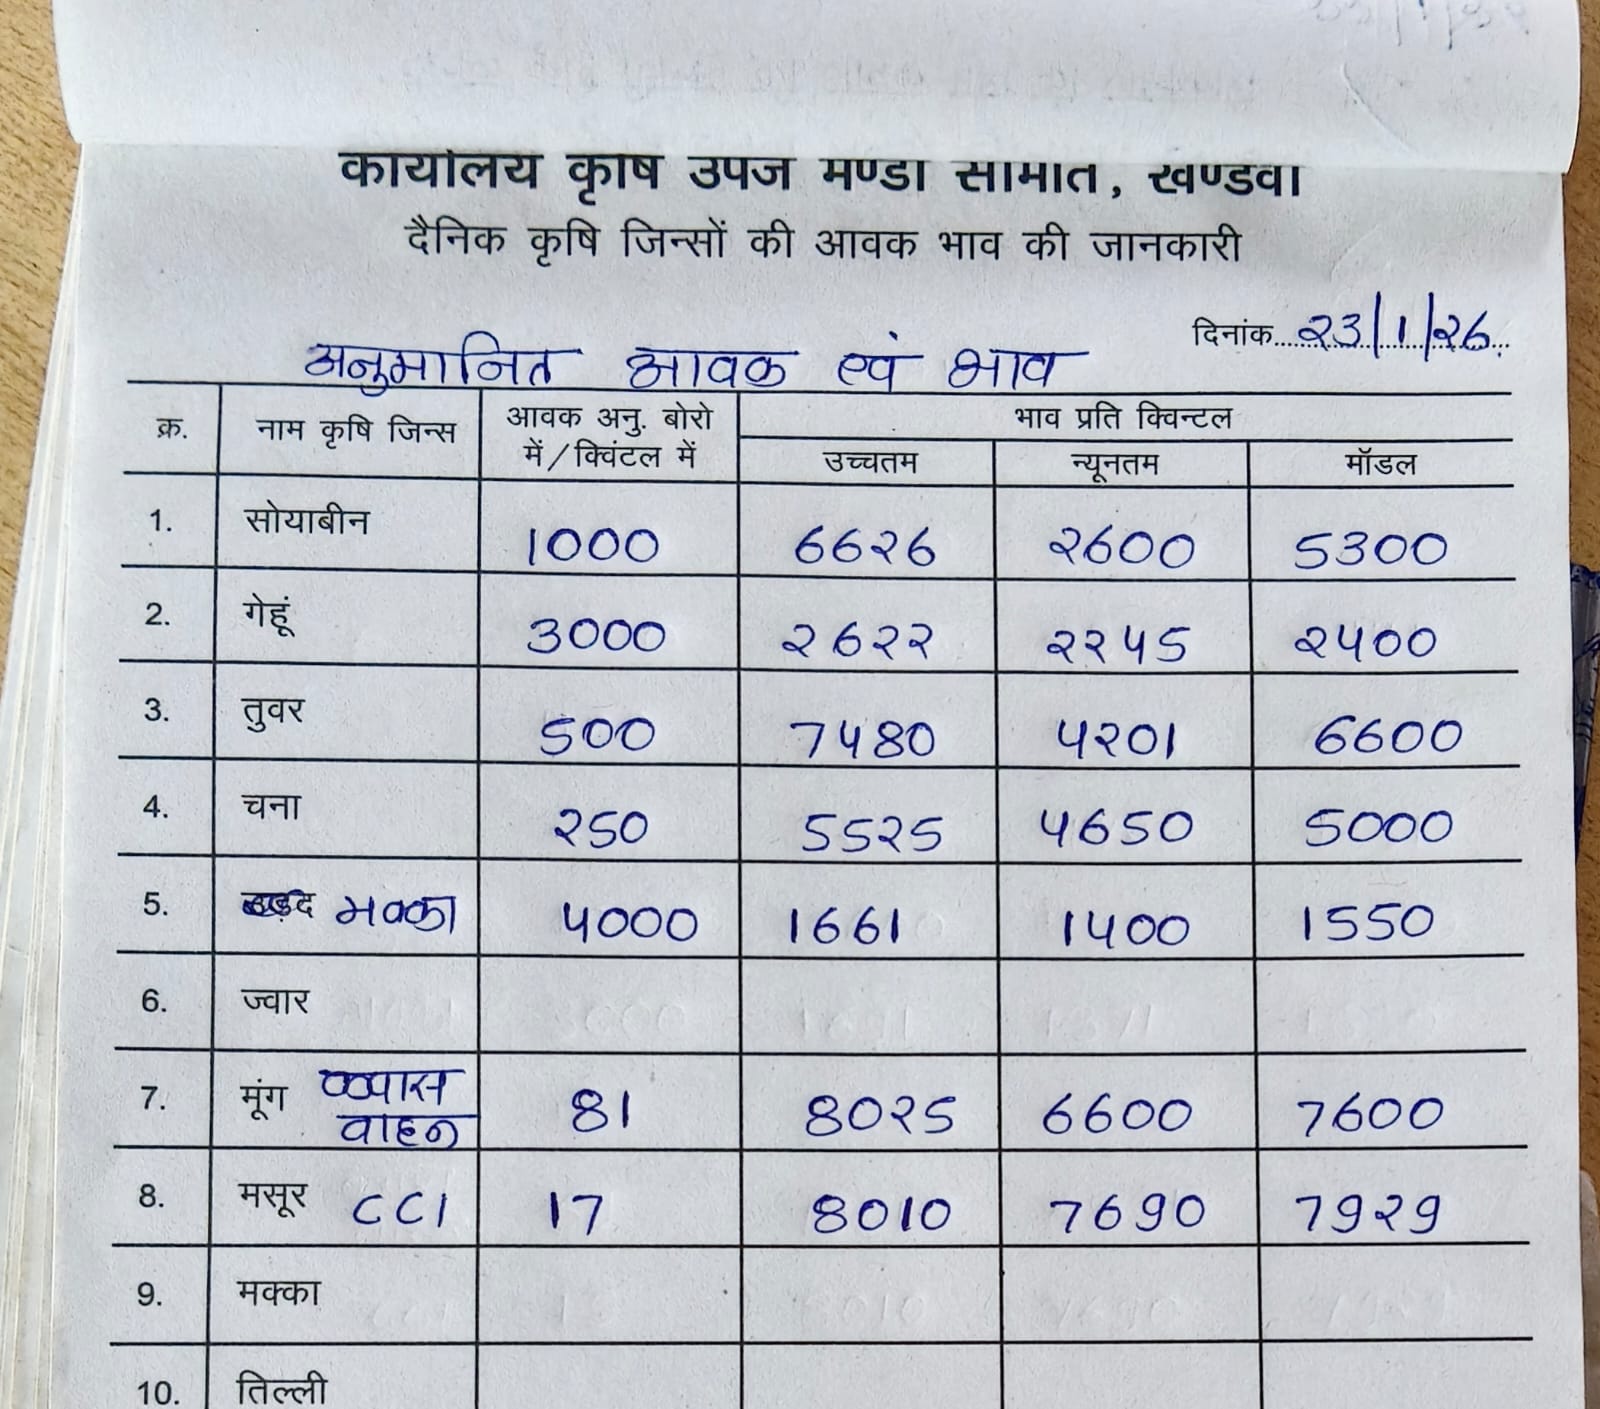 कार्यालय कृषि उपज मण्डी समिति, खण्डवा
दैनिक कृषि जिन्सों की आवक भाव की जानकारी
दिनांक.... २3/1/२6
अनुमानित आवक एवं भाव
क्र. नाम कृषि जिन्स आवक अनु. बोरो में/क्विंटल में भाव प्रति क्विन्टल
उच्चतम न्यूनतम मॉडल
1. सोयाबीन 1000 66२6 २600 5300
2. गेहूं 3000 २6२२ २२45 २400
3. तुवर 500 7480 4२01 6600
4. चना २50 55२5 4650 5000
5. उड़द मक्का 4000 1661 1400 1550
6. ज्वार
7. मूंग कपास वाहन 81 80२5 6600 7600
8. मसूर CCI 17 8010 7690 79२9
9. मक्का
10. तिल्ली